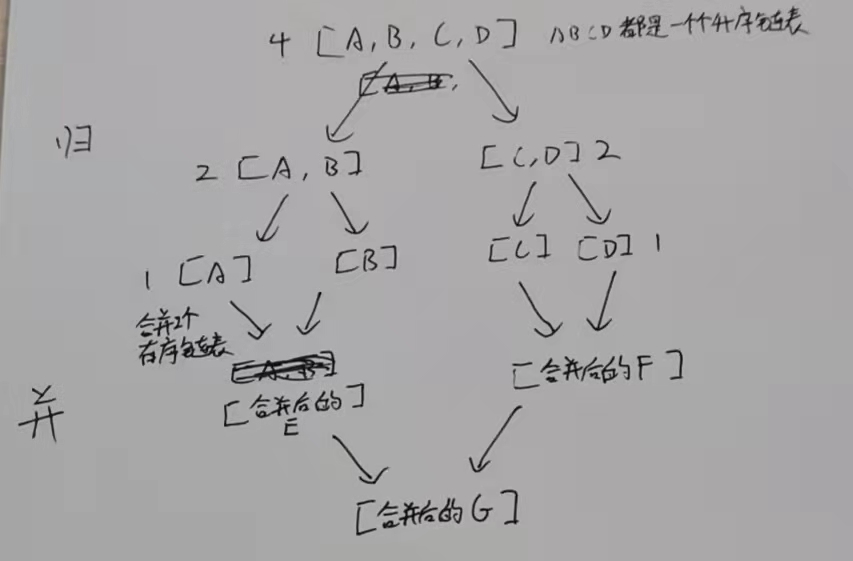 4 [A, B, C, D] ABCD都是一个个升序链表
[A, B,
归
2 [A, B] [C, D] 2
1 [A] [B] [C] [D] 1
合并2个
有序链表
[A, B]
并
[合并后的] [合并后的F]
E
[合并后的G]